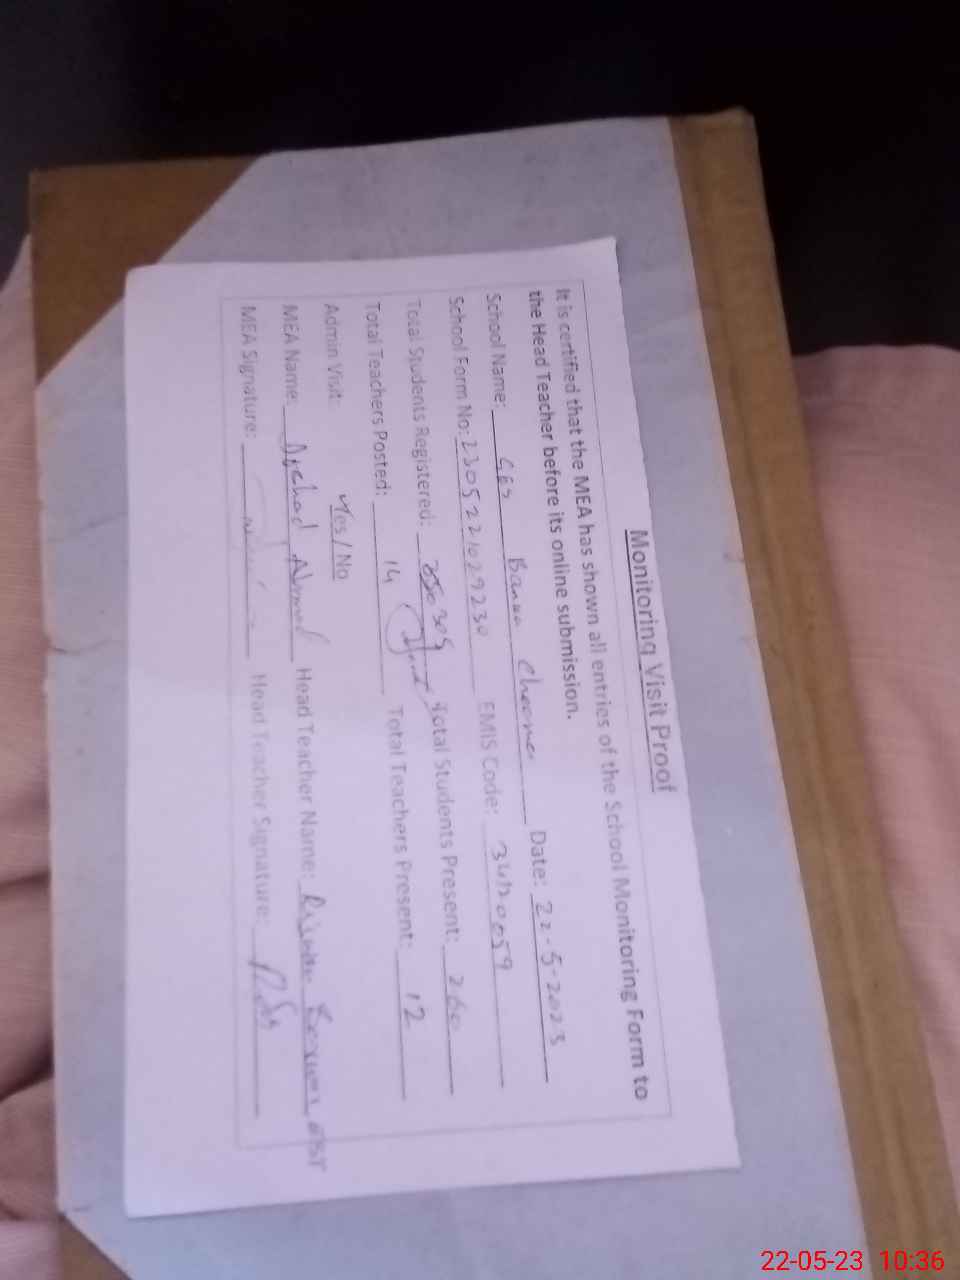 Monitoring Visit Proof
It is certified that the MEA has shown all entries of the School Monitoring Form to
the Head Teacher before its online submission.
School Name: GES Banna Cheena Date: 22-5-2023
School Form No: 2305221029230 EMIS Code:
Total Students Registered: 305 Total Students Present: 260
Total Teachers Posted: 14 Total Teachers Present: 12
Admin Visit: Yes / No
MEA Name: Arshad Ahmad Head Teacher Name:
MEA Signature: Head Teacher Signature:
22-05-23 10:36